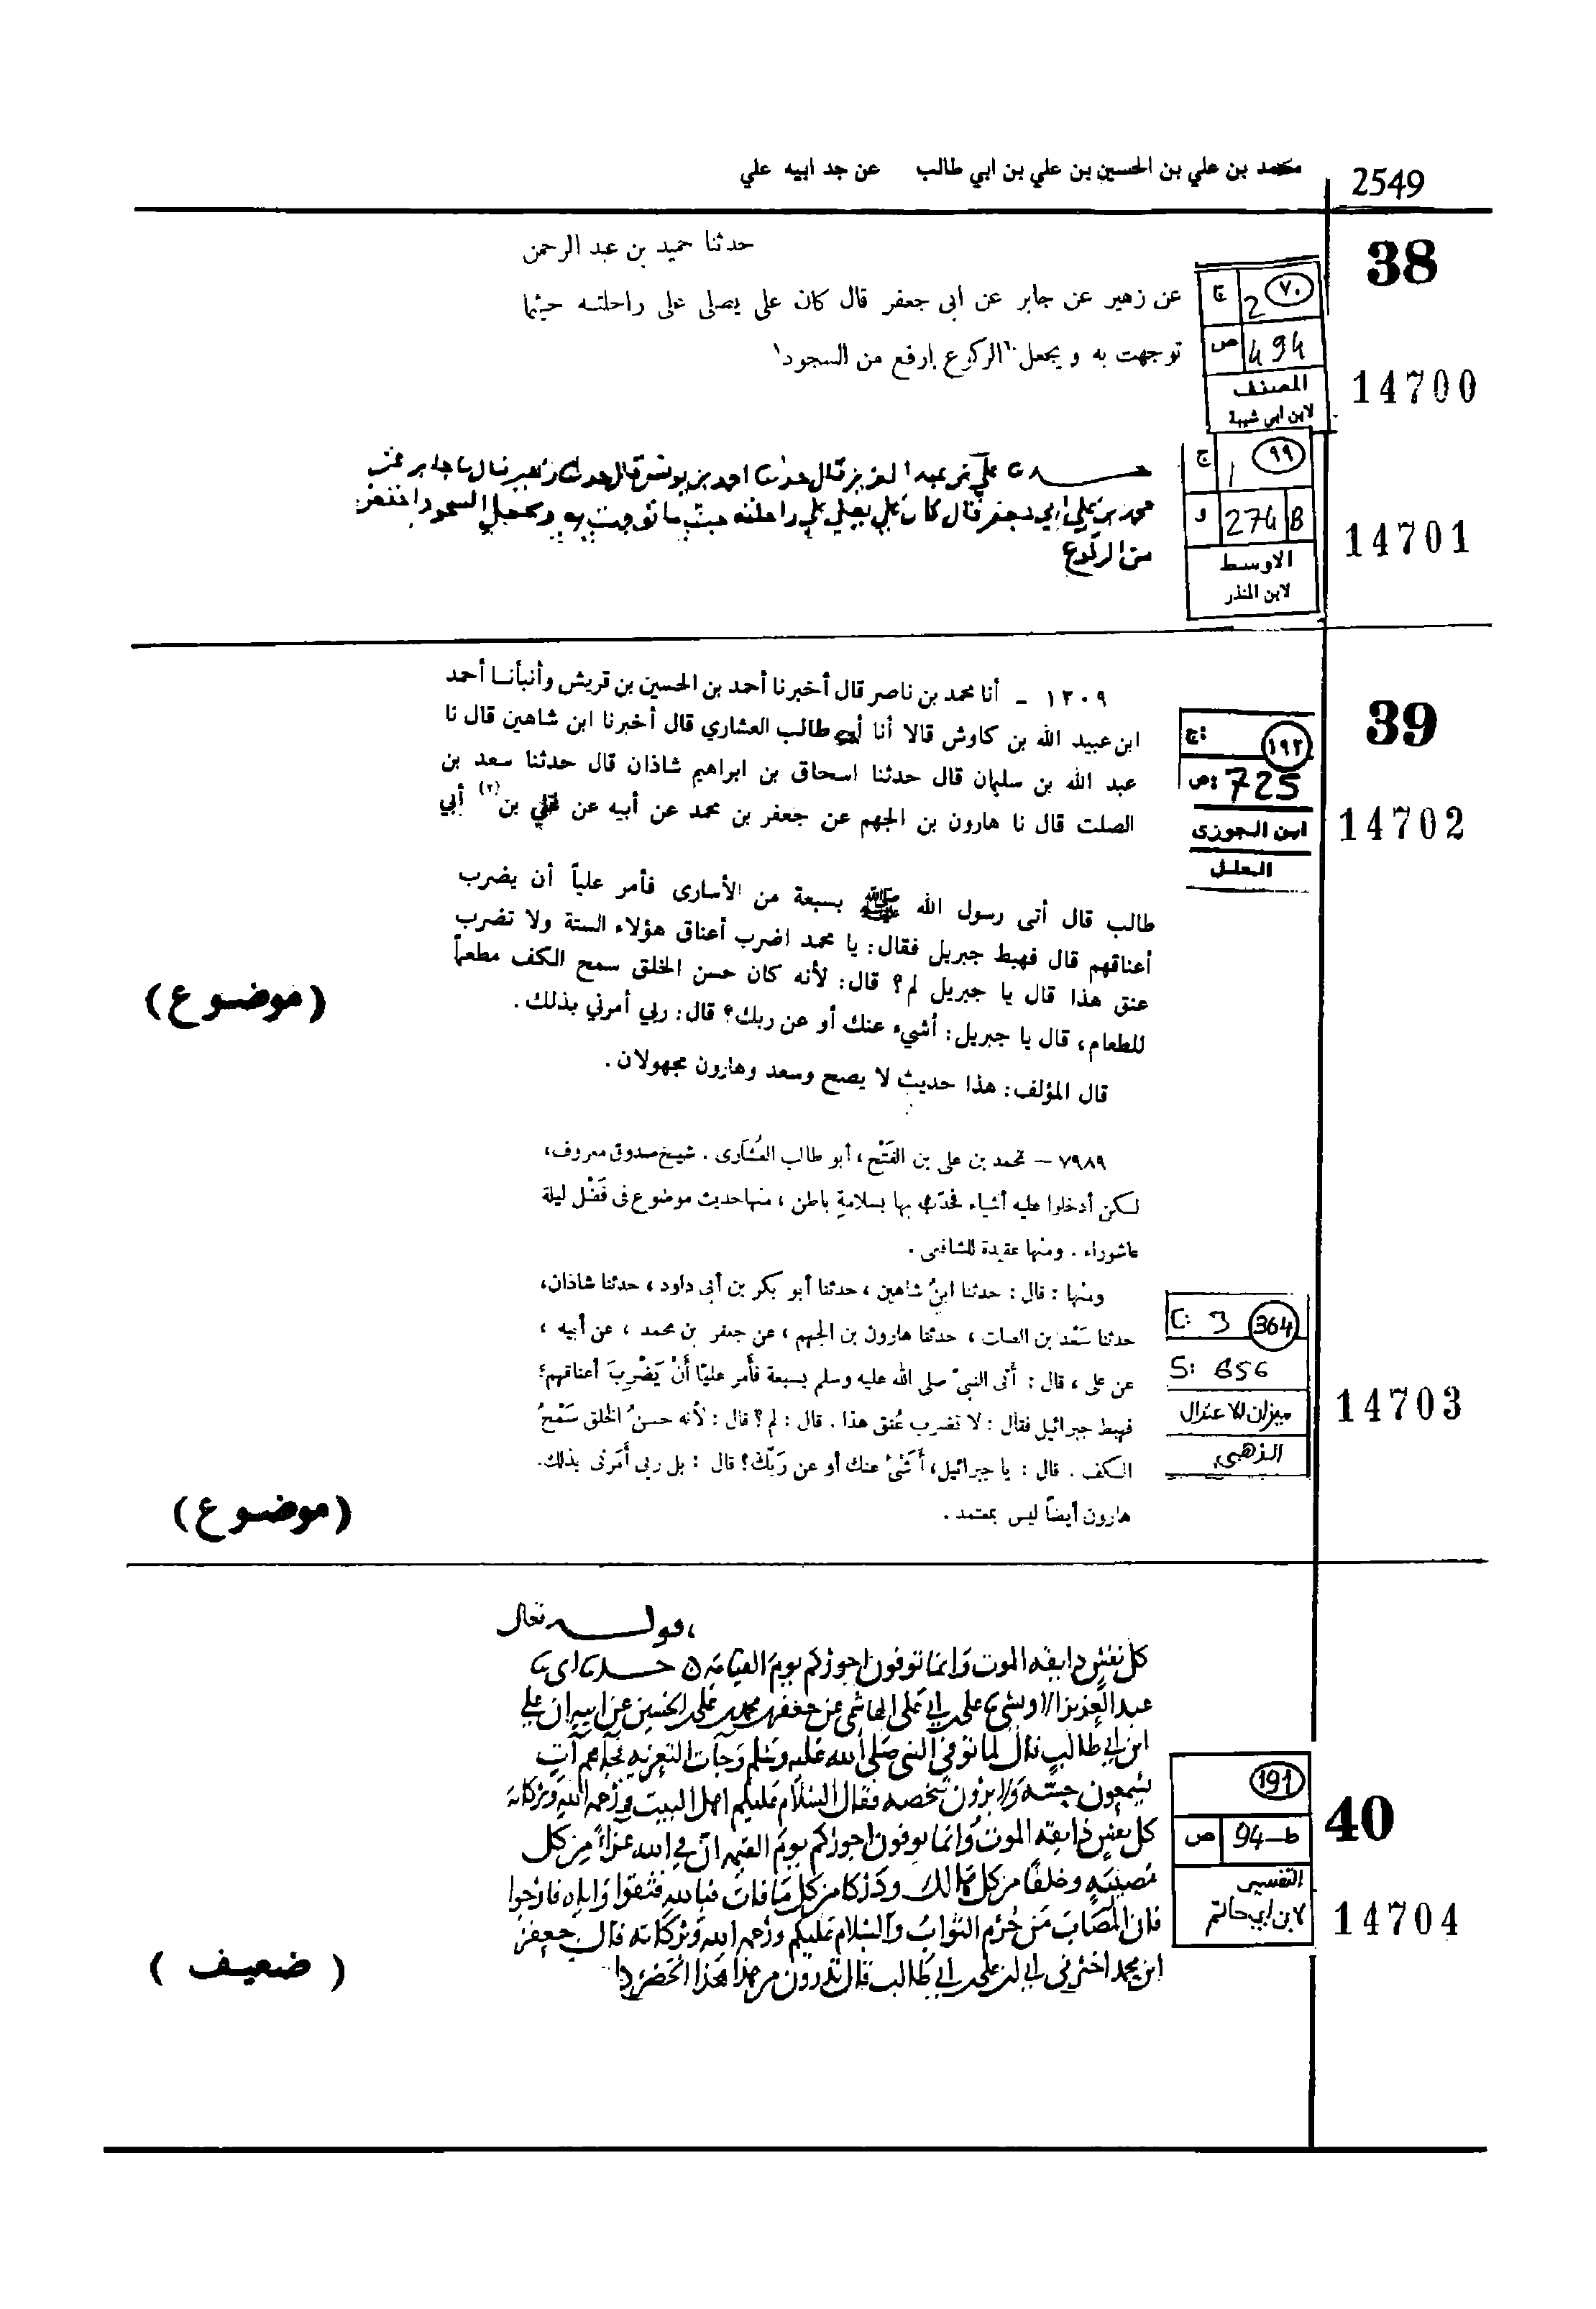 محمد بن علي بن الحسين بن علي بن ابي طالب عن جد ابيه علي
2549
38
حدثنا حميد بن عبد الرحمن
عن زهير عن جابر عن ابي جعفر قال كان علي يصلي على راحلته حيثما
توجهت به ويجعل الركوع ارفع من السجود
٧٠
ج 2
ص 494
المصنف
لابن ابي شيبة
14700
علي بن عبد العزيز قال حدثنا احمد بن يونس قال حدثنا زهير قال نا جابر عن
محمد بن علي ابي جعفر قال كان علي يصلي على راحلته حيث ما توجهت به ويجعل السجود اخفض
من الركوع
٩٩
ج 1
و 274 B
الاوسط
لابن المنذر
14701
39
١٢٠٩ - أنا محمد بن ناصر قال أخبرنا أحمد بن الحسين بن قريش وأنبأنا أحمد
ابن عبيد الله بن كاوش قالا أنا أبو طالب العشاري قال أخبرنا ابن شاهين قال نا
عبد الله بن سليمان قال حدثنا اسحاق بن ابراهيم شاذان قال حدثنا سعد بن
الصلت قال نا هارون بن الجهم عن جعفر بن محمد عن أبيه عن علي بن (٢) أبي
طالب قال أتى رسول الله ﷺ بسبعة من الأسارى فأمر علياً أن يضرب
أعناقهم قال فهبط جبريل فقال: يا محمد اضرب أعناق هؤلاء الستة ولا تضرب
عنق هذا قال يا جبريل لم؟ قال: لأنه كان حسن الخلق سمح الكف مطعماً
للطعام، قال يا جبريل: أشيء عنك أو عن ربك؟ قال: ربي أمرني بذلك.
قال المؤلف: هذا حديث لا يصح وسعد وهارون مجهولان.
(موضوع)
١٩٢
ج:
ص: 725
ابن الجوزى
العلل
14702
٧٩٨٩ – محمد بن على بن الفَتْح، أبو طالب العُشَارى. شيخ صدوق معروف،
لكن أدخلوا عليه أشياء فحدّث بها بسلامةِ باطن، منها حديث موضوع فى فَضْل ليلة
عاشوراء. ومنها عقيدة للشافعى.
ومنها: قال: حدثنا ابنُ شاهين، حدثنا أبو بكر بن أبى داود، حدثنا شاذان،
حدثنا سَعْد بن الصلت، حدثنا هارون بن الجهم، عن جعفر بن محمد، عن أبيه،
عن على، قال: أتى النبىّ صلى الله عليه وسلم بسبعة فأمر عليّا أنْ يَضْرِبَ أعناقهم؛
فهبط جبرائيل فقال: لا تضرب عُنق هذا. قال: لم؟ قال: لأنه حسنُ الخلق سَمْحُ
الكف. قال: يا جبرائيل، أشَىْءٌ عنك أو عن ربِّك؟ قال: بل ربى أمَرنى بذلك.
هارون أيضاً ليس بمعتمد.
(موضوع)
364
C: 3
S: 656
ميزان الاعتدال
الذهبي
14703
قوله تعالى
كل نفس ذايقة الموت وانما توفون اجوركم يوم القيامة حدثنا ابي نا
عبد العزيز الاويسي علي بن ابي علي الهاشمي عن جعفر بن محمد بن علي بن الحسين عن ابيه ان علي
ابن ابي طالب قال لما توفي النبي صلى الله عليه وسلم وجات التعزية جاهم آت
يسمعون حسه ولا يرون شخصه فقال السلام عليكم اهل البيت ورحمة الله وبركاته
كل نفس ذايقة الموت وانما توفون اجوركم يوم القيمة ان في الله عزاء من كل
مصيبة وخلفا من كل هالك ودركا من كل ما فات فبالله فثقوا واياه فارجوا
فان المصاب من حرم الثواب والسلام عليكم ورحمة الله وبركاته قال جعفر
ابن محمد اخبرني ابي ان علي بن ابي طالب قال تدرون من هذا هذا الخضر
(ضعيف)
191
ص 94-ب
التفسير
لابن ابي حاتم
40
14704